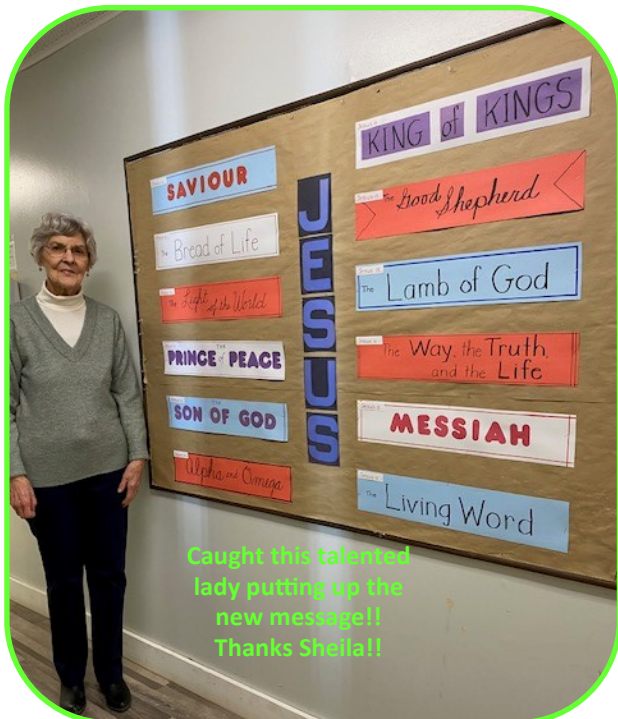 SAVIOUR
The Bread of Life
The Light of the World
THE
PRINCE of PEACE
THE
SON OF GOD
Alpha and Omega
JESUS
KING of KINGS
The Good Shepherd
The Lamb of God
The Way, the Truth,
and the Life
MESSIAH
The Living Word
Caught this talented
lady putting up the
new message!!
Thanks Sheila!!